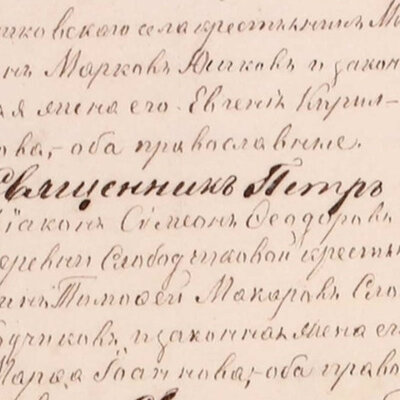 чковскаго села крестьянинъ М
нъ Марковъ Яичковъ и закон
ая жена его Евгенія Кирил-
ова, оба православные.
Священникъ Петръ
Діаконъ Сѵмеонъ Ѳеодоровъ
деревни Слободчиковой кресть
инъ Тимоѳей Макаровъ Сло
бодчиковъ и законная жена ег
Марѳа Іоаннова, оба право